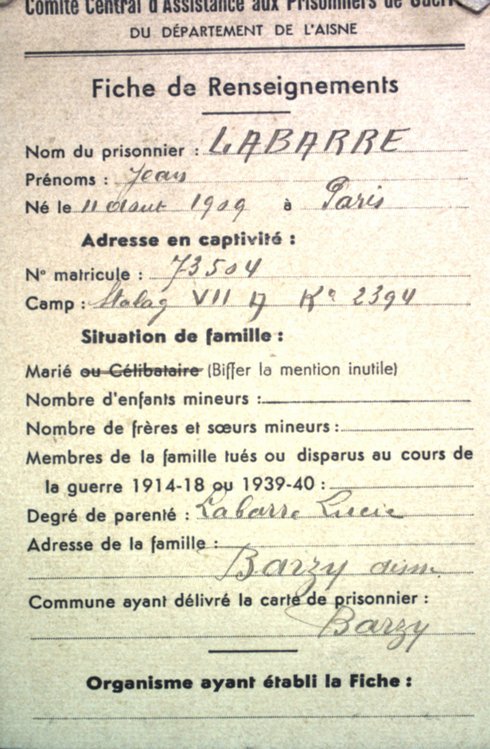 Comité Central d'Assistance aux Prisonniers de Guerre
DU DÉPARTEMENT DE L'AISNE
Fiche de Renseignements
Nom du prisonnier : LABARRE
Prénoms : Jean
Né le 11 aout 1909 à Paris
Adresse en captivité :
N° matricule : 73504
Camp : Stalag VII A Kº 2394
Situation de famille :
Marié ou Célibataire (Biffer la mention inutile)
Nombre d'enfants mineurs :
Nombre de frères et sœurs mineurs :
Membres de la famille tués ou disparus au cours de
la guerre 1914-18 ou 1939-40 :
Degré de parenté : Labarre Lucie
Adresse de la famille :
Barzy aisne
Commune ayant délivré la carte de prisonnier :
Barzy
Organisme ayant établi la Fiche :